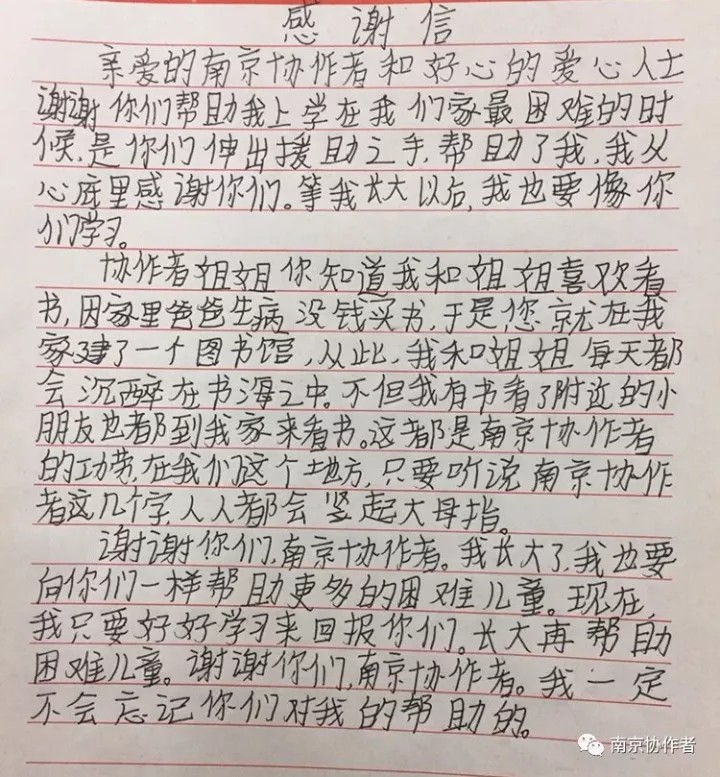 感谢信
亲爱的南京协作者和好心的爱心人士
谢谢你们帮助我上学在我们家最困难的时
候,是你们伸出援助之手,帮助了我,我从
心底里感谢你们。等我长大以后,我也要像你
们学习。
协作者姐姐你知道我和姐姐喜欢看
书,因家里爸爸生病没钱买书,于是您就在我
家建了一个图书馆,从此,我和姐姐每天都
会沉醉在书海之中。不但我有书看了附近的小
朋友也都到我家来看书。这都是南京协作者
的功劳,在我们这个地方,只要听说南京协作
者这几个字,人人都会竖起大母指。
谢谢你们,南京协作者。我长大了,我也要
向你们一样帮助更多的困难儿童。现在,
我只要好好学习来回报你们。长大再帮助
困难儿童。谢谢你们,南京协作者。我一定
不会忘记你们对我的帮助的。
南京协作者